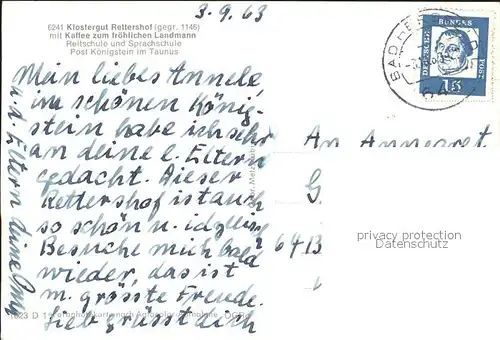 3.9.63
6241 Klostergut Rettershof (gegr. 1146)
mit Kaffee zum fröhlichen Landmann
Reitschule und Sprachschule
Post Königstein im Taunus
BAD
DEUTSCHE BUNDES
15
Mein liebes Annele,
im schönen König-
stein habe ich sehr
an deine l. Eltern
gedacht. Dieser
Rettershof ist auch
so schön u. idyllisch
Besuche mich bald
wieder, das ist
m. grösste Freude.
Lieb grüsst dich
u. d. Eltern deine
An Annegret
G
6413
privacy protection
Datenschutz
1823 D